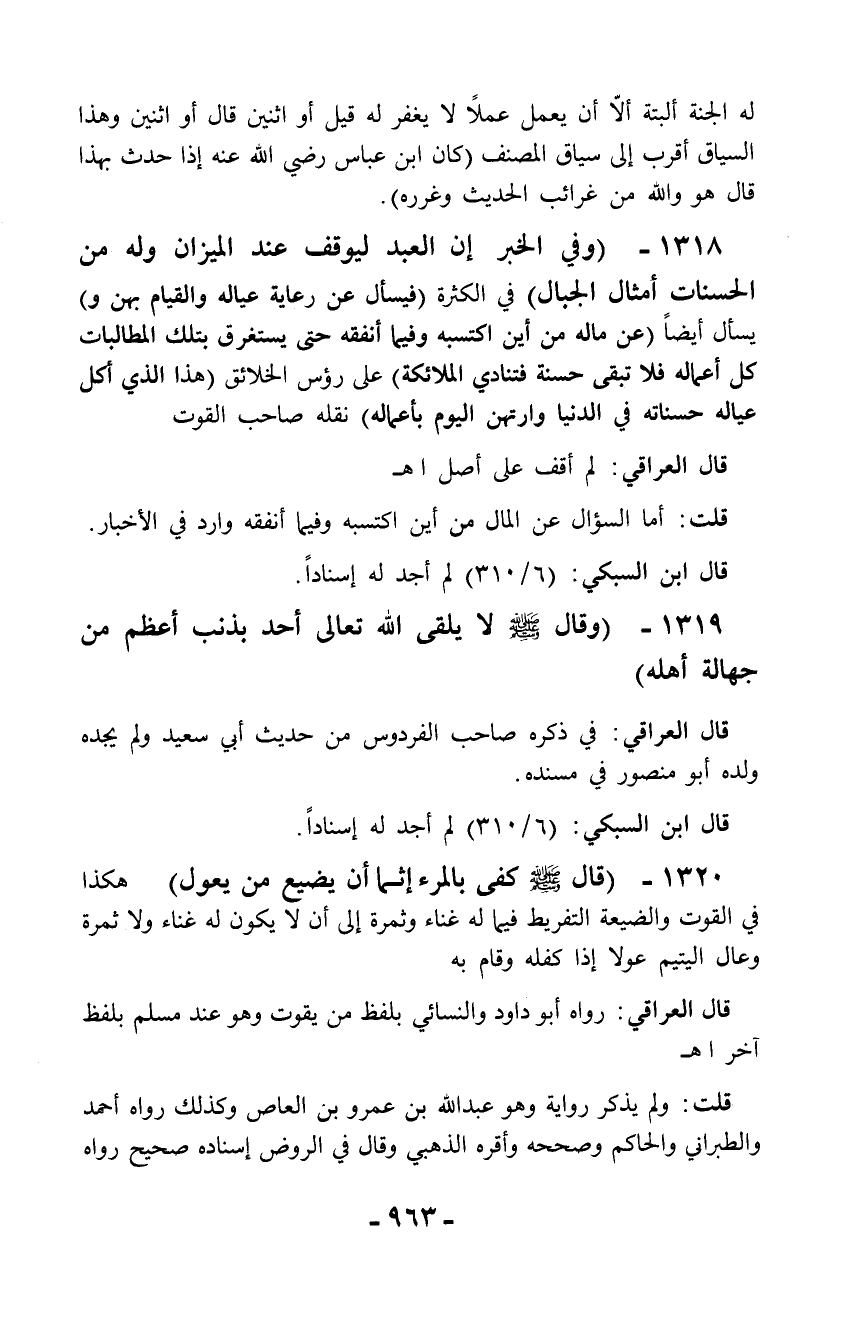 له الجنة ألبتة ألاّ أن يعمل عملاً لا يغفر له قيل أو اثنين قال أو اثنين وهذا
السياق أقرب إلى سياق المصنف (كان ابن عباس رضي الله عنه إذا حدث بهذا
قال هو والله من غرائب الحديث وغرره).
١٣١٨ - (وفي الخبر إن العبد ليوقف عند الميزان وله من
الحسنات أمثال الجبال) في الكثرة (فيسأل عن رعاية عياله والقيام بهن و)
يسأل أيضاً (عن ماله من أين اكتسبه وفيما أنفقه حتى يستغرق بتلك المطالبات
كل أعماله فلا تبقى حسنة فتنادي الملائكة) على رؤس الخلائق (هذا الذي أكل
عياله حسناته في الدنيا وارتهن اليوم بأعماله) نقله صاحب القوت
قال العراقي: لم أقف على أصل ا هـ
قلت: أما السؤال عن المال من أين اكتسبه وفيما أنفقه وارد في الأخبار.
قال ابن السبكي: (٣١٠/٦) لم أجد له إسناداً.
١٣١٩ - (وقال ﷺ لا يلقى الله تعالى أحد بذنب أعظم من
جهالة أهله)
قال العراقي: في ذكره صاحب الفردوس من حديث أبي سعيد ولم يجده
ولده أبو منصور في مسنده.
قال ابن السبكي: (٣١٠/٦) لم أجد له إسناداً.
١٣٢٠ - (قال ﷺ كفى بالمرء إثما أن يضيع من يعول) هكذا
في القوت والضيعة التفريط فيما له غناء وثمرة إلى أن لا يكون له غناء ولا ثمرة
وعال اليتيم عولا إذا كفله وقام به
قال العراقي: رواه أبو داود والنسائي بلفظ من يقوت وهو عند مسلم بلفظ
آخر ا هـ
قلت: ولم يذكر رواية وهو عبدالله بن عمرو بن العاص وكذلك رواه أحمد
والطبراني والحاكم وصححه وأقره الذهبي وقال في الروض إسناده صحيح رواه
- ٩٦٣ -